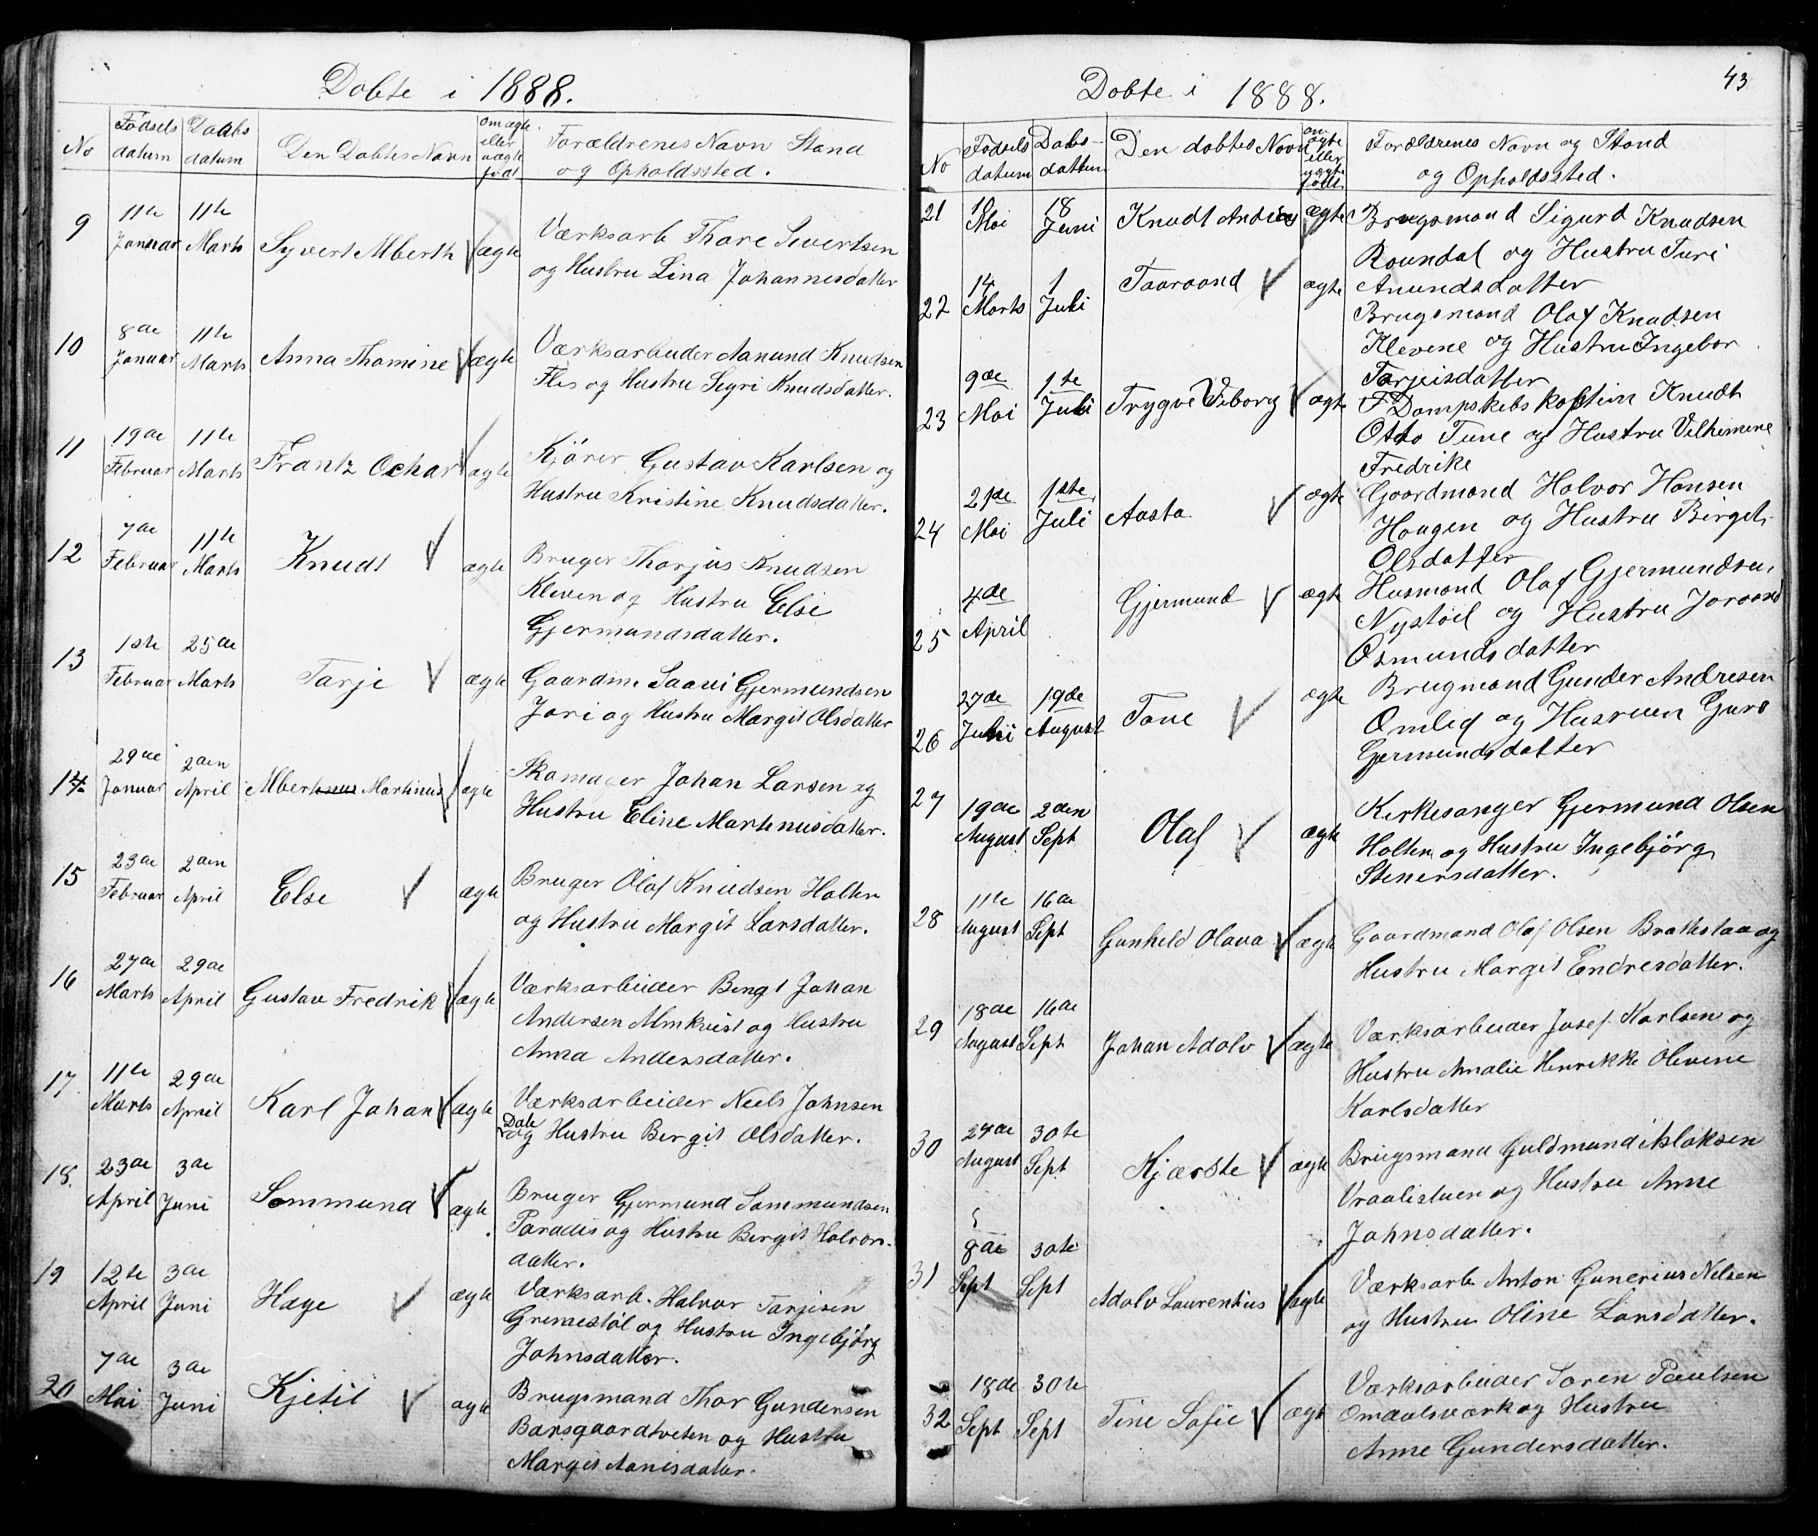 Døbte i 1888.
No
Fødsels datum
Daabs datum
Den Døbtes Navn
om ægte eller uægte født
Forældrenes Navn Stand
og Opholdssted.
9 11te Januar 11te Marts Syvert Alberth ægte Værksarb Thore Sivertsen
og Hustru Lina Johannesdatter
10 8de Januar 11te Marts Anna Thomine ægte Værksarbeider Aanund Knudsen
Fles og Hustru Sigri Knudsdatter.
11 19de Februar 11te Marts Frantz Ochar ægte Kjører Gustav Karlsen og
Hustru Kristine Knudsdatter.
12 7de Februar 11te Marts Knudt ægte Bruger Thorjus Knudsen
Kleven og Hustru Else
Gjermundsdatter.
13 1ste Februar 25de Marts Tarje ægte Gaardm. Saavi Gjermundsen
Jori og Hustru Margit Olsdatter
14 29de Januar 2den April Albert Martinus ægte Skomager Johan Larsen og
Hustru Eline Martinusdatter.
15 23de Februar 2den April Else ægte Bruger Olaf Knudsen Holten
og Hustru Margit Larsdatter.
16 27de Marts 29de April Gustav Fredrik ægte Værksarbeider Bengt Johan
Andersen Almkvist og Hustru
Anna Andersdatter.
17. 11te Marts 29de April Karl Johan ægte Værksarbeider Neels Johnsen
Dale
og Hustru Bergit Olsdatter.
18. 23de April 3de Juni Sommund ægte Bruger Gjermund Sommundsen
Paradis og Hustru Bergit Halvors-
datter.
19 12te April 3de Juni Hæge ægte Værksarb. Halvor Tarjesen
Gremestøl og Hustru Ingebjørg
Johnsdatter.
20 7de Mai 3de Juni Kjetil ægte Brugsmand Thor Gundersen
Baasgaardtveten og Hustru
Margit Aanisdatter.
43
Døbte i 1888.
No
Fødsels datum
Dabs-dattum
Den døbtes Navn
om ægte eller uægte født.
Forældrenes Navn og Stand
og Opholdssted.
21 10 Mai 18 Juni Knudt Andreas ægte Brugsmand Sigurd Knudsen
Roundal og Hustru Turi
Anundsdatter
22 14 Marts 1 Juli Taaraand ægte Brugsmand Olaf Knudsen
Klevene og Hustru Ingebor
Tarjeisdatter
23 9de Mai 1te Juli Trygve Viborg ægte Dampskibskaptein Knudt
Otto Tune og Hustru Vilhemine
Fredrike
24 21de Mai 1ste Juli Aasta ægte Gaardmand Halvor Hansen
Haugen og Hustru Birget
Olsdatter
25 4de April Gjermund ægte Husmand Olaf Gjermundsen
Nystøil og Hustru Joraand
Osmundsdatter
26 27de Juli 19de August Tone ægte Brugmand Gunder Andresen
Omlid og Husruen Guro
Gjermundsdatter
27 19de August 2den Sept Olaf ægte Kirkesanger Gjermund Olsen
Holten og Hustru Ingebjørg
Stenersdatter.
28 11te August 16de Sept Gunheld Olava ægte Gaardmand Olaf Olsen Brathstaa og
Hustru Margit Endresdatter.
29 18de August 16de Sept Johan Adolv ægte Værksarbeider Josef Karlsen og
Hustru Amalie Henrikke Olevine
Karlsdatter
30 27de August 30te Sept Kjærste ægte Brugsmand Guldmund Aslaksen
Vraalistuen og Hustru Anne
Johnsdatter.
31 8de Sept 30te Sept Adolv Laurentius ægte Værksarb Anton Gunerius Nilsen
og Hustru Oline Larsdatter.
32 18de Sept 30te Sept Tine Sofie ægt Værksarbeider Soren Paulsen
Omdalsværk og Hustru
Anne Gundersdatter.